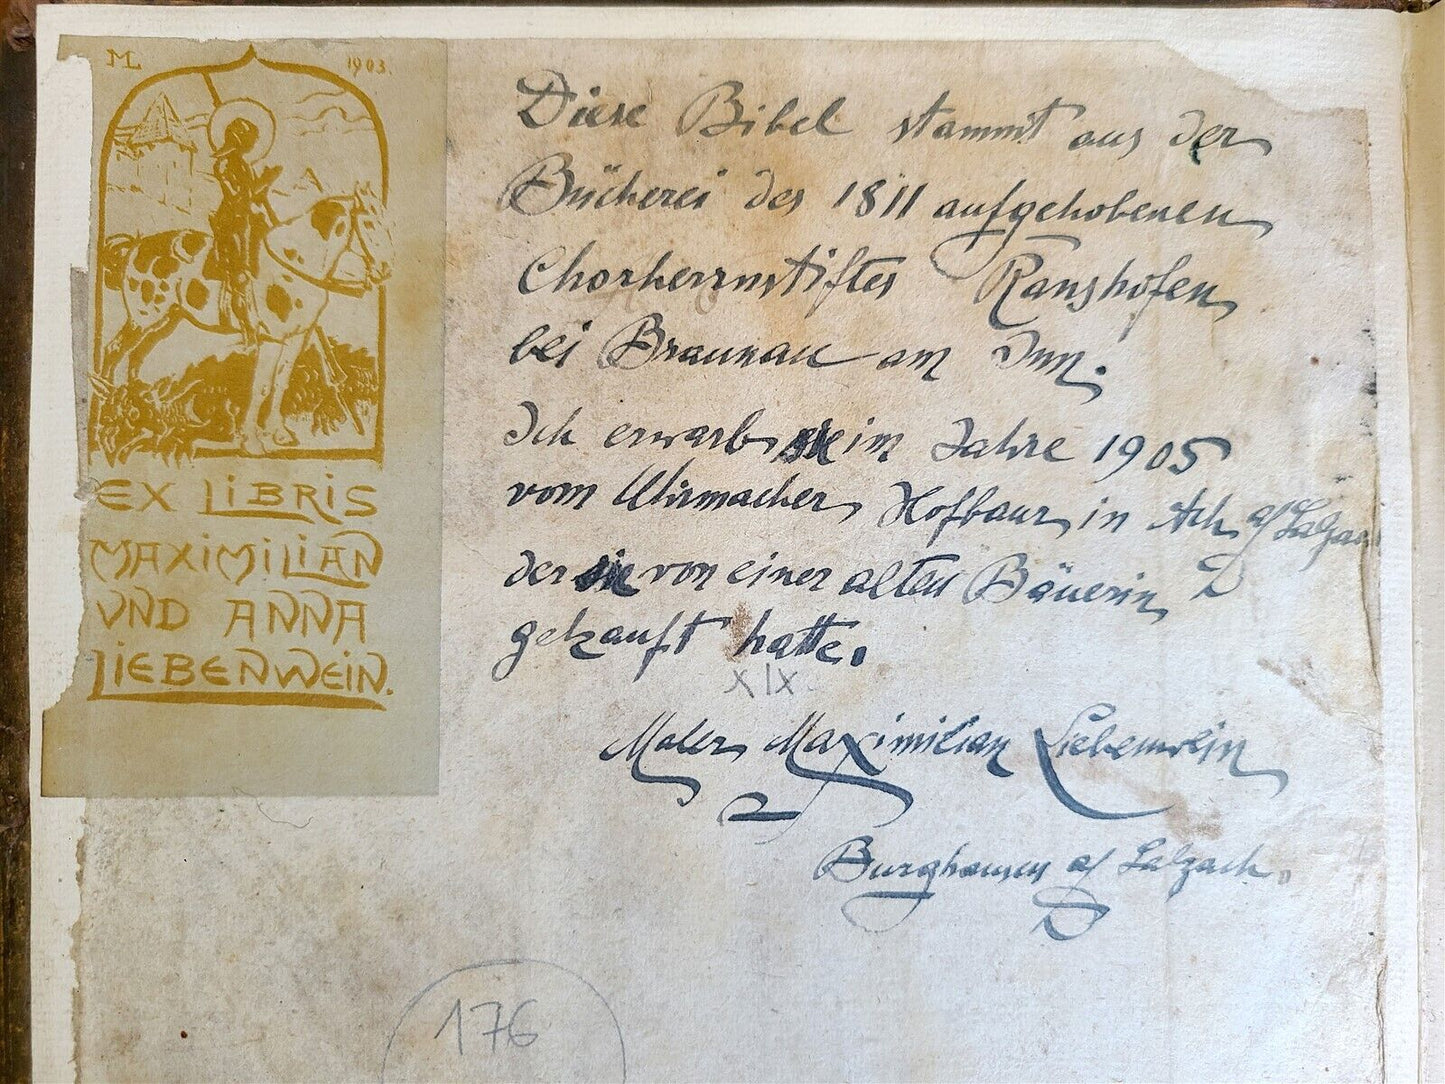 ML 1903.
EX LIBRIS
MAXIMILIAN
VND ANNA
LIEBENWEIN.
Diese Bibel stammt aus der
Bücherei des 1811 aufgehobenen
Chorherrnstiftes Ranshofen
bei Braunau am Inn.
Ich erwarb sie im Jahre 1905
vom Uhrmacher Hofbaur in Ach a/Salzach
der sie von einer alten Bäuerin
gekauft hatte.
XIX.
Maler Maximilian Liebenwein
Burghausen a/Salzach.
176